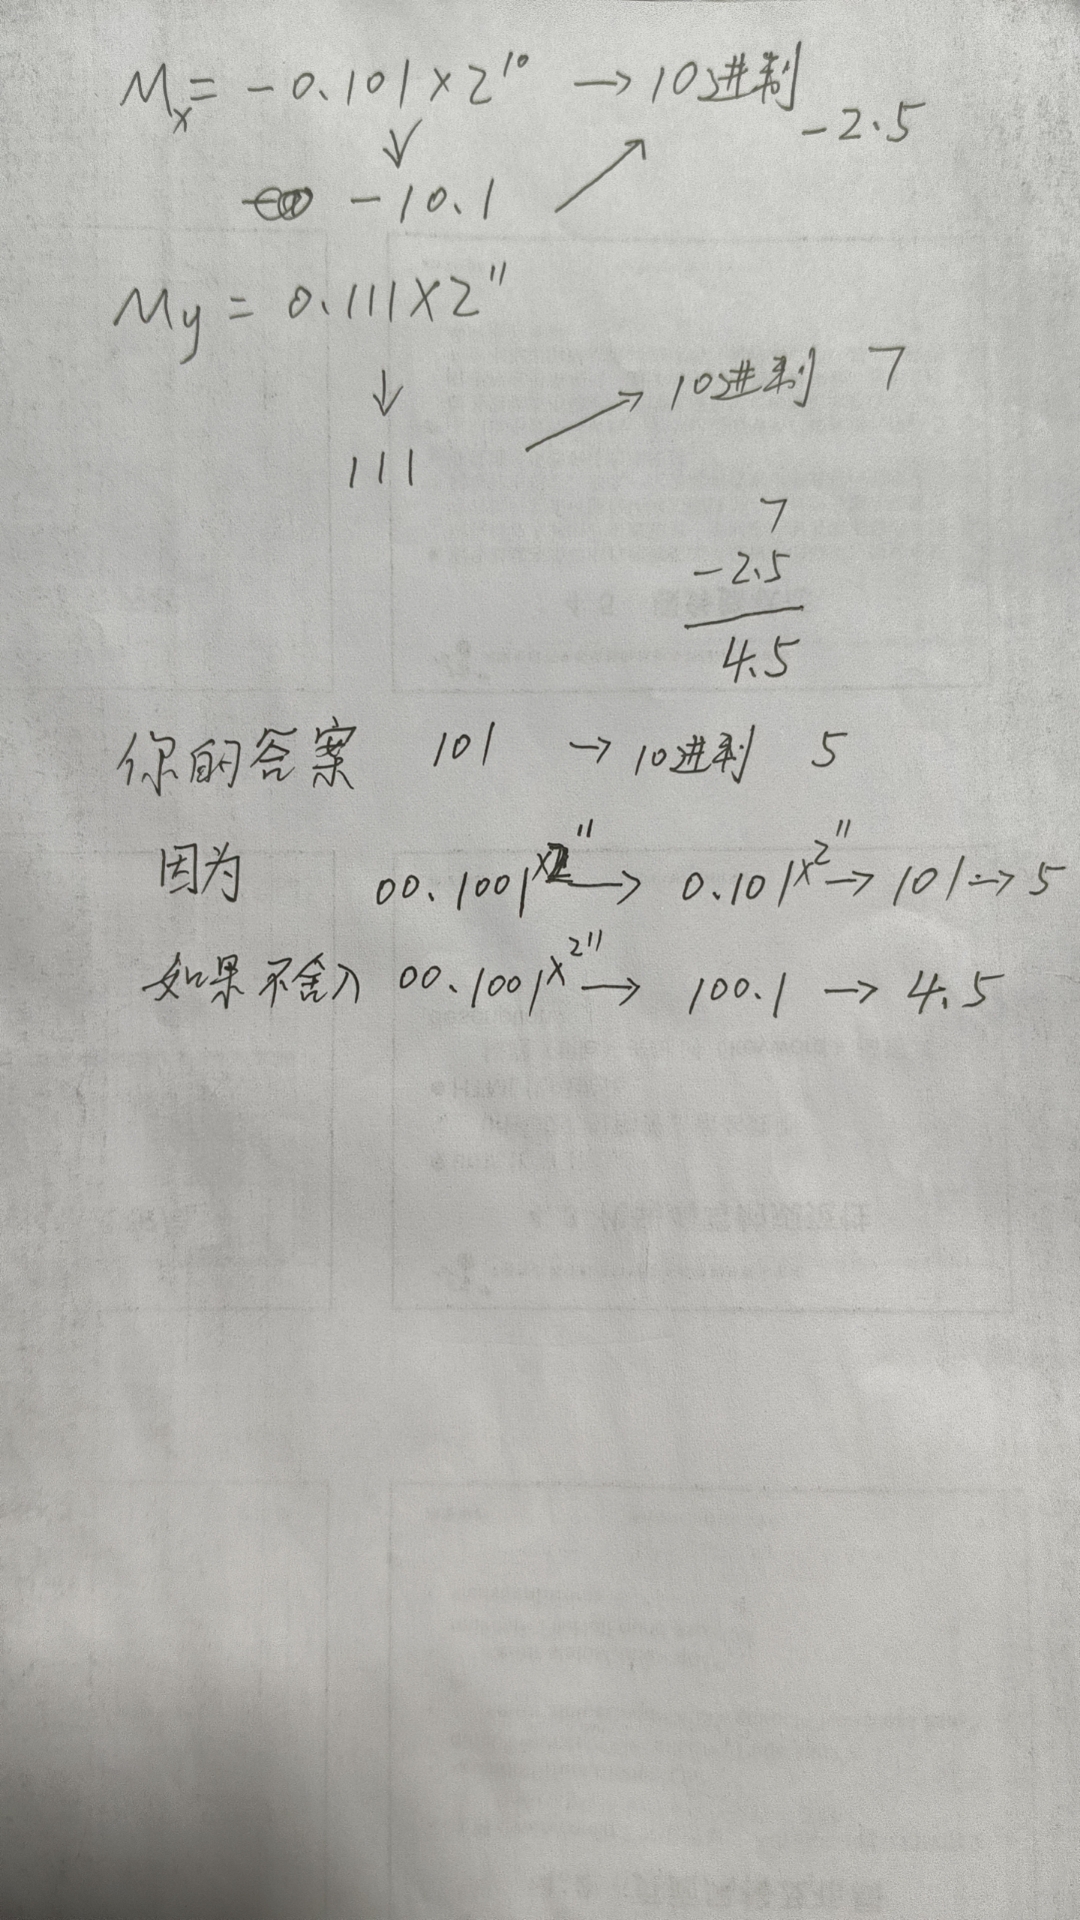 Mx = -0.101×2^10 → 10进制 -2.5
↓
-10.1
My = 0.111×2^11
↓ 10进制 7
111
7
-2.5
4.5
你的答案 101 → 10进制 5
因为 00.1001×2^11 → 0.101×2^11 → 101 → 5
如果不舍入 00.1001×2^11 → 100.1 → 4.5